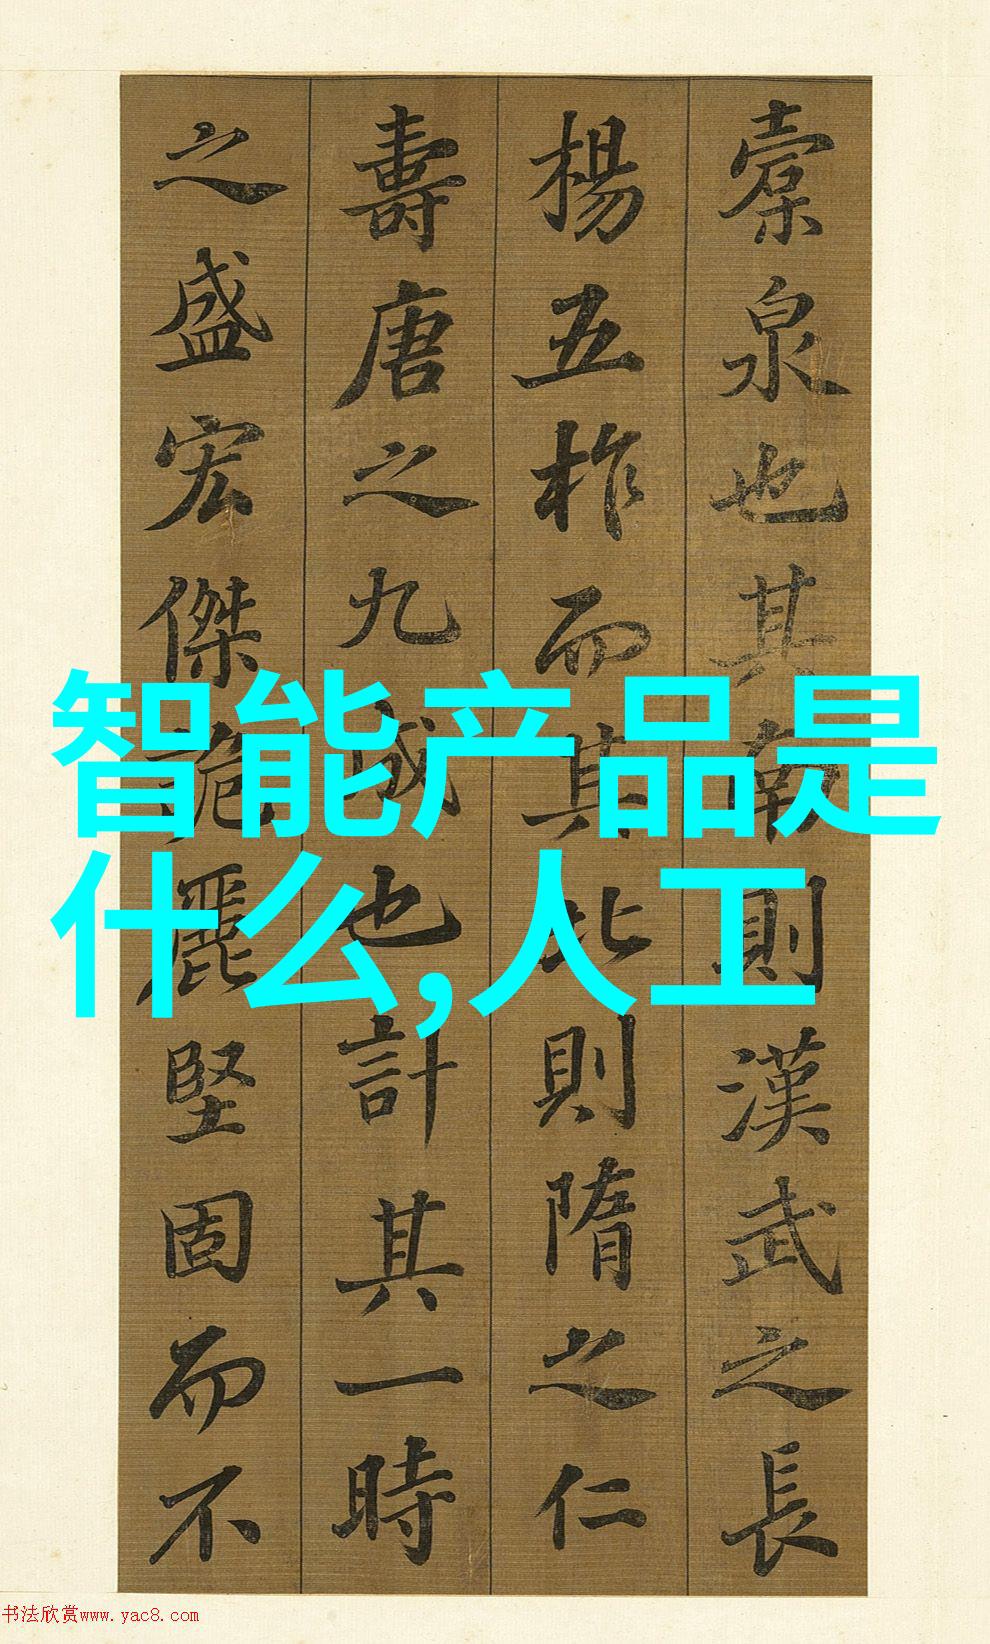 智能产品是
什么,人工
槖泉也其南則漢武之長
楊五柞而其北則隋之仁
壽唐之九成也計其一時
之盛宏傑詭麗堅固而不
书法欣赏www.yac8.com